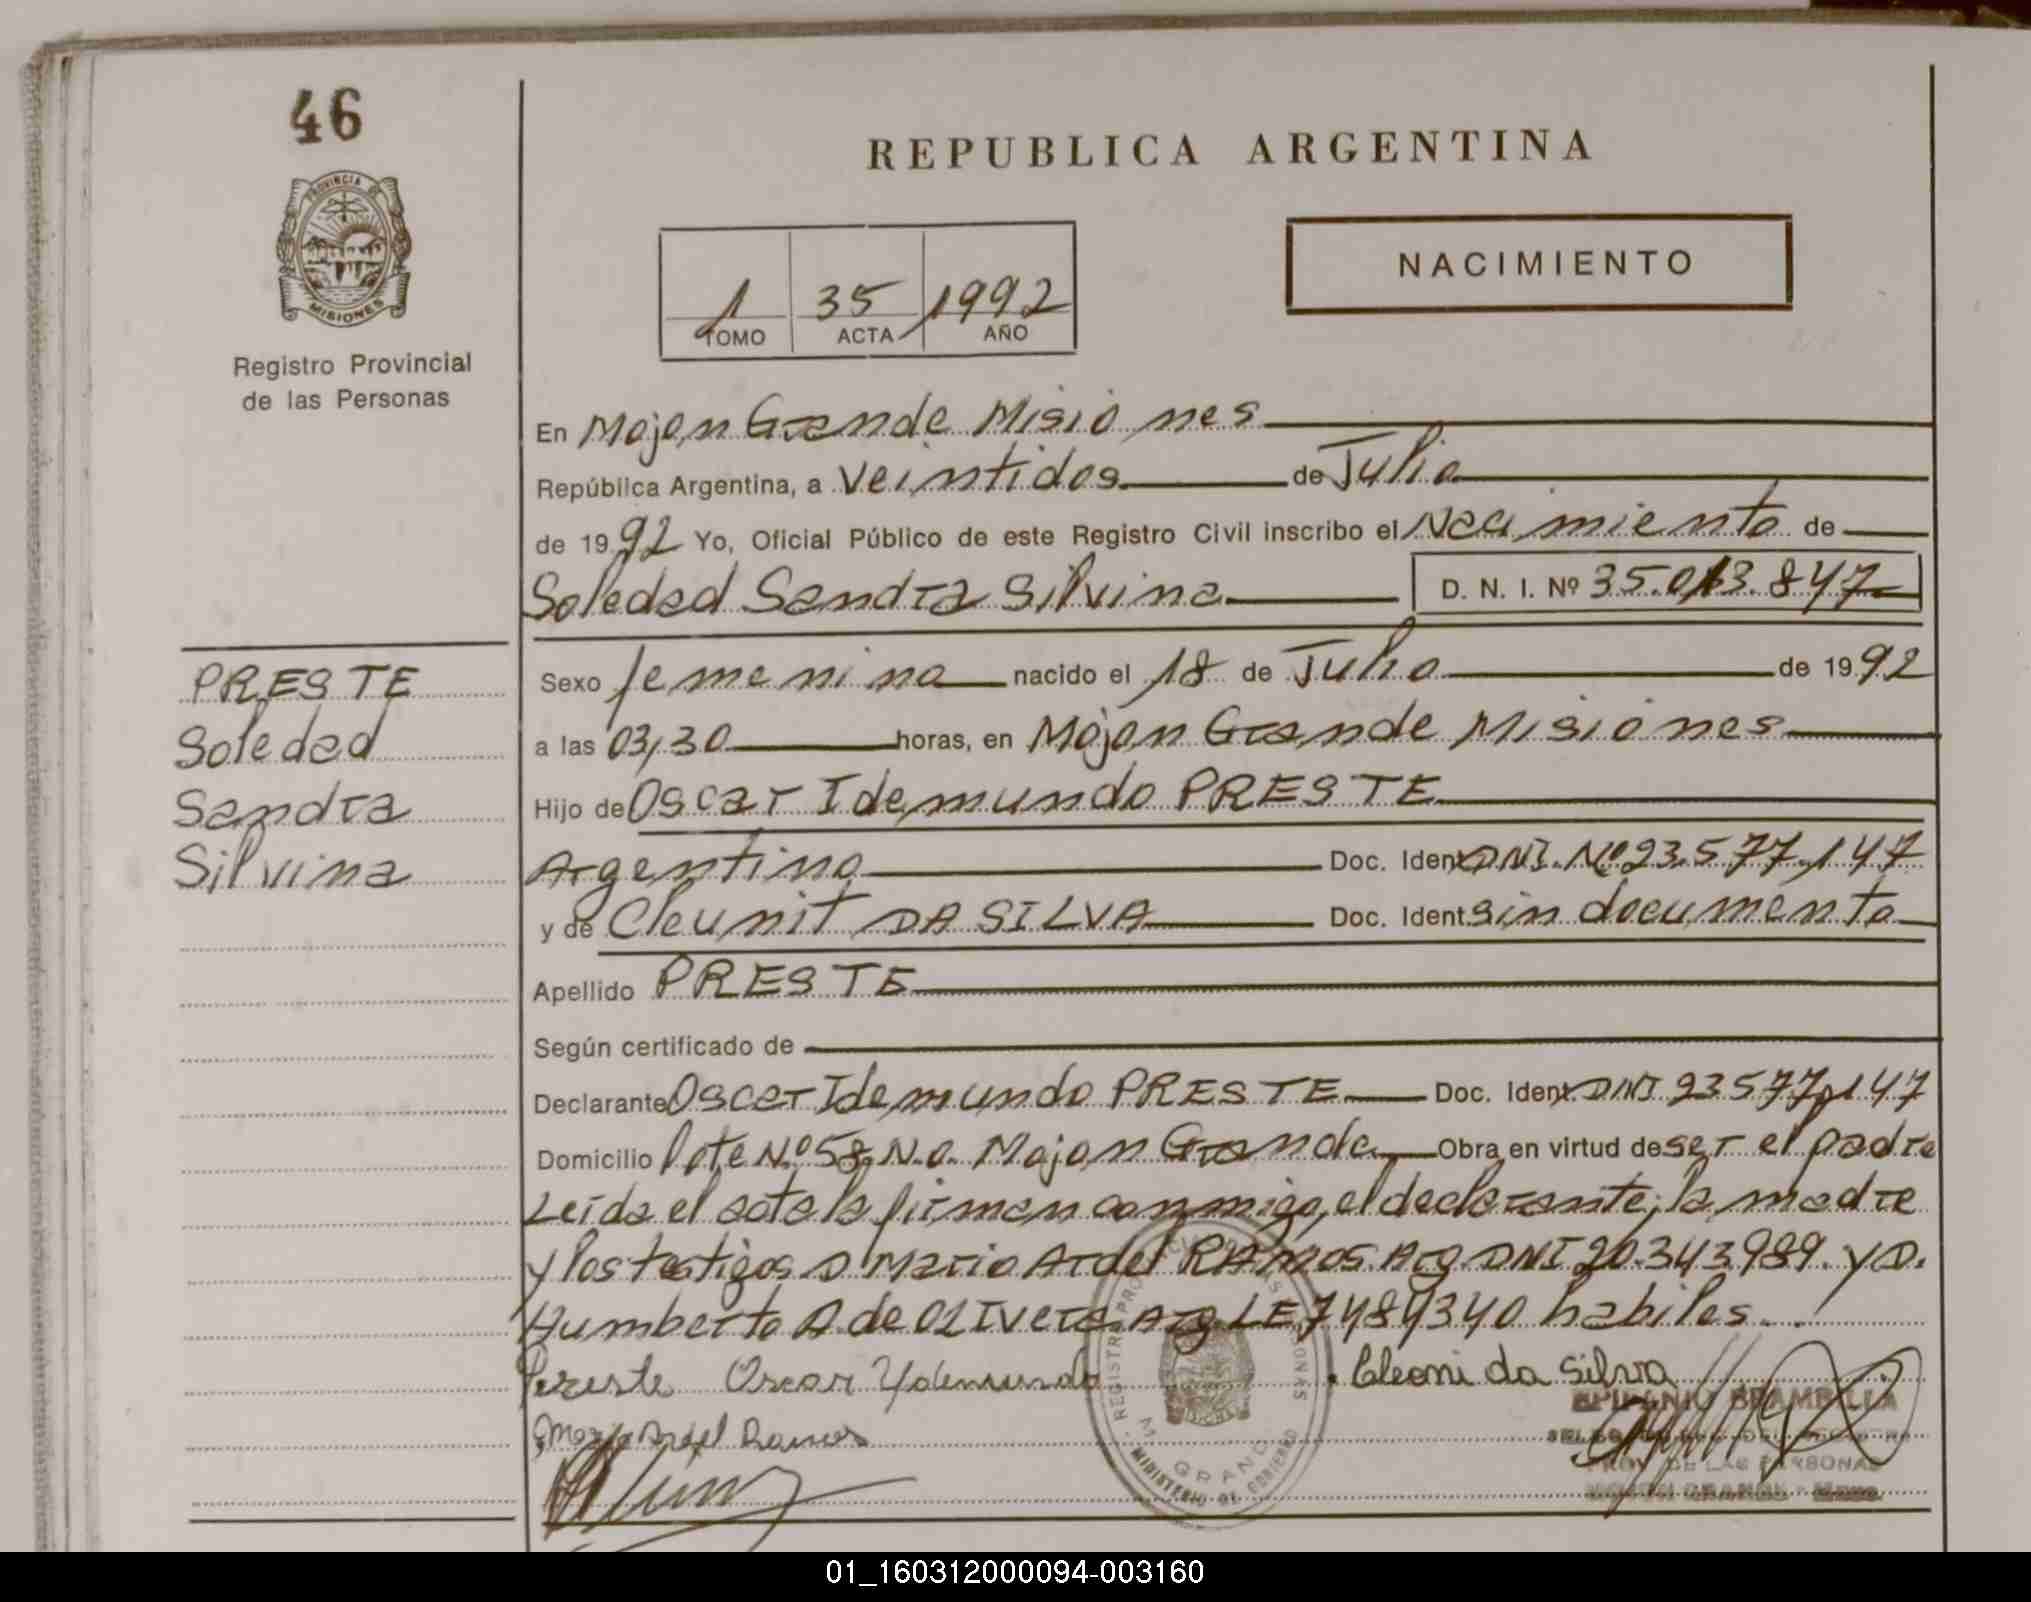 46
REPUBLICA ARGENTINA
PROVINCIA DE
MISIONES
NACIMIENTO
1 35 1992
TOMO ACTA AÑO
Registro Provincial
de las Personas
En Mojon Grande Misiones
República Argentina, a Veintidos de Julio
de 1992 Yo, Oficial Público de este Registro Civil inscribo el Nacimiento de
Soledad Sandra Silvina D. N. I. Nº 35.013.847
PRESTE
Soledad
Sandra
Silvina
Sexo femenino nacido el 18 de Julio de 1992
a las 03,30 horas, en Mojon Grande Misiones
Hijo de Oscar Idemundo PRESTE
Argentino Doc. Ident. DNI. Nº 23.577.147
y de Cleunit DA SILVA Doc. Ident. sin documento
Apellido PRESTE
Según certificado de
Declarante Oscar Idemundo PRESTE Doc. Ident. DNI 23577.147
Domicilio lote Nº 58 N.O. Mojon Grande Obra en virtud de ser el padre
Leida el acta la firman conmigo, el declarante, la madre
y los testigos D Mario Ardel RAMOS Arg DNI 20.343989. y D.
Humberto A. de OLIVERA Arg LE 7484340 habiles.
Preste Oscar Ydemundo Cleoni da Silva
Mario Ardel Ramos
MINISTERIO DE GOBIERNO
PROV DE LAS PERSONAS
01_160312000094-003160